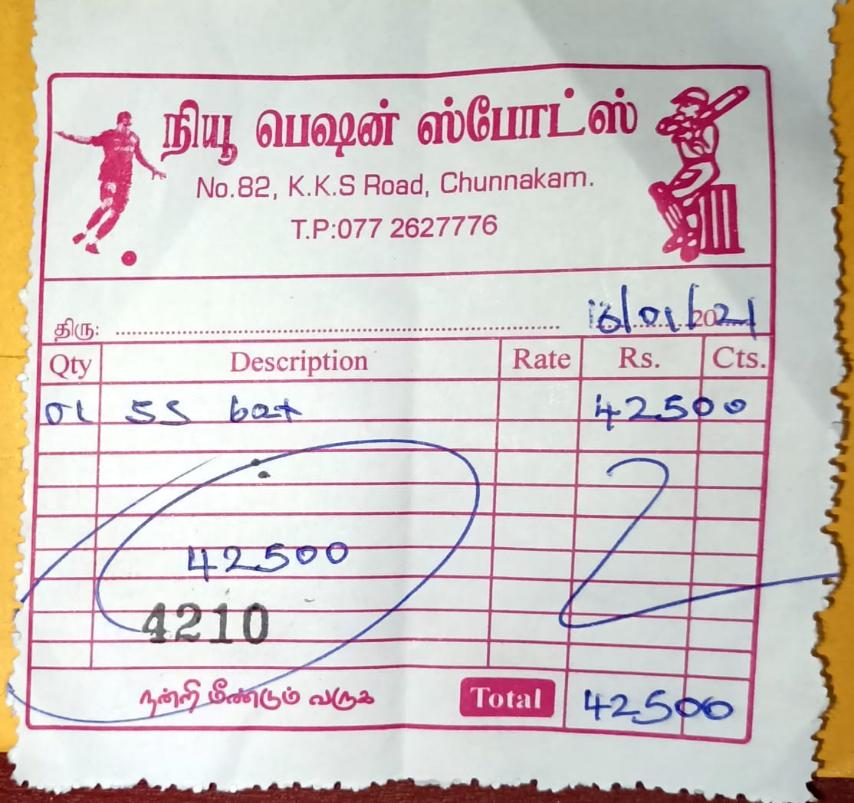 நியூ பெஷன் ஸ்போட்ஸ்
No.82, K.K.S Road, Chunnakam.
T.P:077 2627776
திரு: 16/01/2021
Qty Description Rate Rs. Cts.
01 SS bat 42500
42500
4210
நன்றி மீண்டும் வருக Total 42500